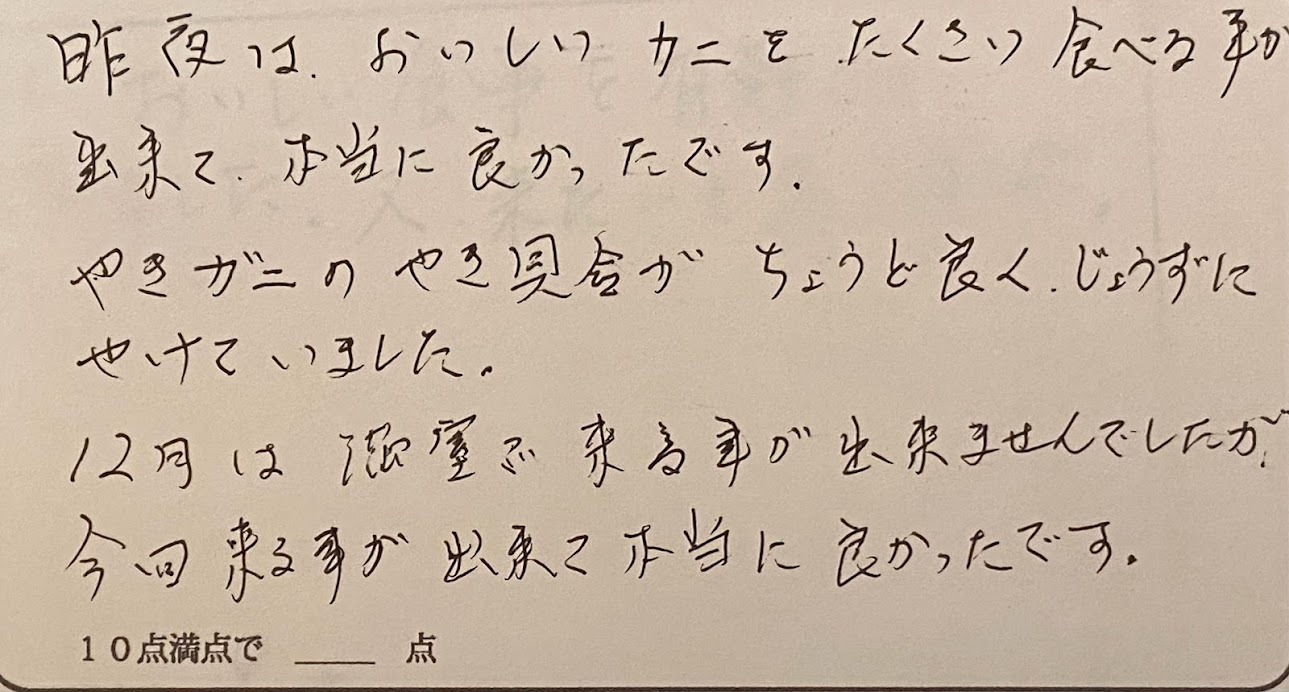 昨夜は、おいしいカニを、たくさん食べる事が
出来て、本当に良かったです。
やきガニのやき具合がちょうど良く、じょうずに
やけていました。
12月は満室で来る事が出来ませんでしたが、
今回来る事が出来て本当に良かったです。
10点満点で ____ 点